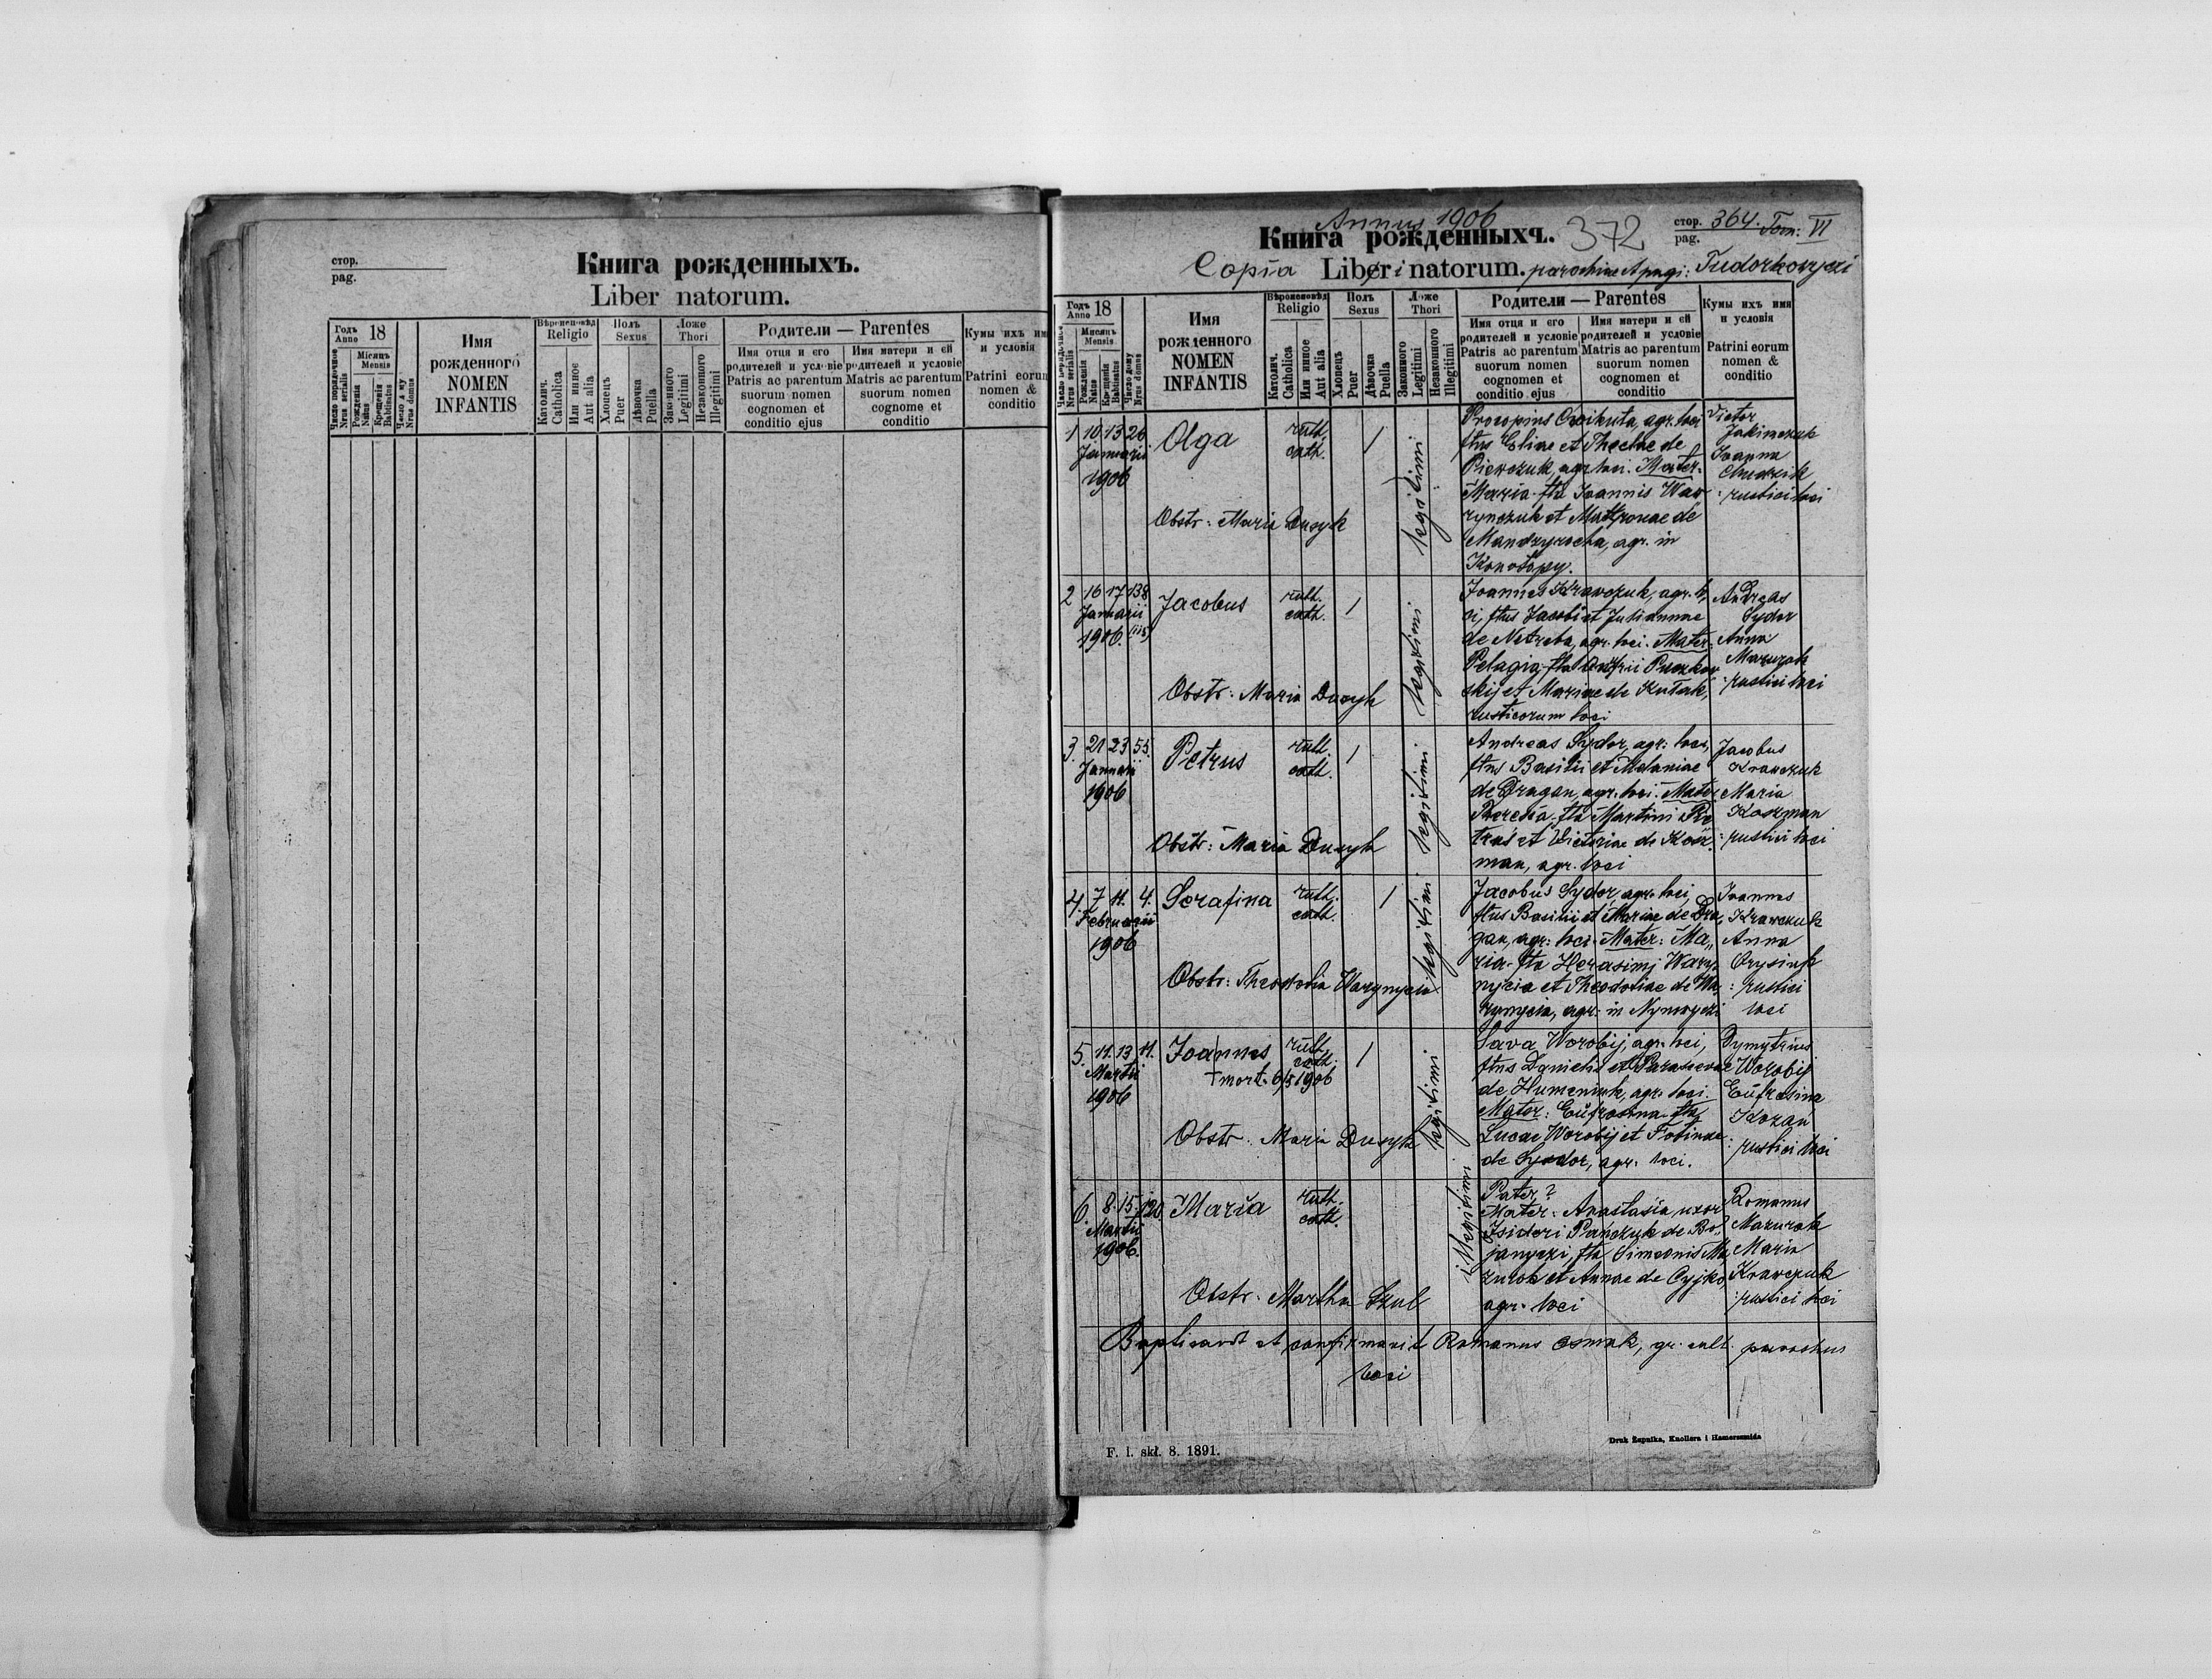 стор.
pag.
Книга рожденныхъ.
Liber natorum.
Годъ 18
Anno
Мѣсяць
Mensis
Число порядочное
Nrus serialis
Рожденія
Natus
Крещенія
Babtisatus
Число дому
Nrus domus
Имя
рожденного
NOMEN
INFANTIS
Вѣроисповѣд
Religio
Католич.
Catholica
Или инное
Aut alia
Полъ
Sexus
Хлопець
Puer
Дѣвочка
Puella
Ложе
Thori
Законного
Legitimi
Незаконного
Illegitimi
Родители — Parentes
Имя отця и его
родителей и условіе
Patris ac parentum
suorum nomen
cognomen et
conditio ejus
Имя матери и єй
родителей и условіе
Matris ac parentum
suorum nomen
cognome et
conditio
Кумы ихъ имя
и условія
Patrini eorum
nomen &
conditio
Annus 1906
Книга рожденныхъ. 372
стор. 364. Tom: VI
pag.
Copia Libri natorum. parochiae et pagi: Tudorkowyczi
Годъ 18
Anno
Мѣсяць
Mensis
Число порядочное
Nrus serialis
Рожденія
Natus
Крещенія
Babtisatus
Число дому
Nrus domus
Имя
рожденного
NOMEN
INFANTIS
Вѣроисповѣд
Religio
Католич.
Catholica
Или инное
Aut alia
Полъ
Sexus
Хлопець
Puer
Дѣвочка
Puella
Ложе
Thori
Законного
Legitimi
Незаконного
Illegitimi
Родители — Parentes
Имя отця и его
родителей и условіе
Patris ac parentum
suorum nomen
cognomen et
conditio ejus
Имя матери и єй
родителей и условіе
Matris ac parentum
suorum nomen
cognomen et
conditio
Кумы ихъ имя
и условія
Patrini eorum
nomen &
conditio
1 10 13 26
Januarii
1906
Olga
ruth.
cath.
1
legitimi
Procopius agr. loci
ftus Eliae et Theclae de
Piewczuk, agr. loci. Mater:
Maria fta Joannis War
rynczuk et Matronae de
agr. in
Konotopy.
Victor
Jakimczuk
Joanna
Chudzik
: rustici loci
Obstr: Maria Dusyk
2 16 17 138
Januarii
1906. (115)
Jacobus
ruth.
cath.
1
legitimi
Joannes Krawczuk, agr. lo
ci, ftus Jacobi et Juliannae
de Netreba, agr. loci. Mater:
Pelagia fta Onufrii Puszkow
skij et Mariae de Kutak,
rusticorum loci
Andreas
Sydor
Anna
Mazurok
: rustici loci
Obstr: Maria Dusyk
3. 21 23 55
Januarii
1906
Petrus
ruth.
cath.
1
legitimi
Andreas Sydor, agr. loci,
ftus Basilii et Melaniae
de Dragan, agr. loci. Mater
Theresia, fta Martini Pie
tras et Victoriae de Kosz
man, agr. loci
Jacobus
Krawczuk
Maria
Koszman
: rustici loci
Obstr: Maria Dusyk
4. 7 11. 4.
Februarii
1906
Serafina
ruth.
cath.
1
legitimi
Jacobus Sydor, agr. loci,
ftus Basilii et Mariae de Dra
gan, agr. loci. Mater: Ma„
ria fta Herasimj Wary
nycia et Theodotiae de Wa
rynycia, agr. in
Joannes
Krawczuk
Anna
: rustici
loci
Obstr: Theodotia Warynycia
5. 11. 13 11.
Martii
1906
Joannes
† mort. 6/5 1906
ruth.
cath.
1
legitimi
Sava Worobij, agr. loci,
ftus Danielis et Parasceviae
de Humeniuk, agr. loci.
Mater: Eufrosina fta
Lucae Worobij et Fotinae
de Sydor, agr. loci.
Dymytrius
Worobij
Eufrosina
Kozan
: rustici loci
Obstr. Maria Dusyk
6. 8. 15. 120
Martii
1906.
Maria
ruth.
cath.
illegitimi
Pater ?
Mater: Anastasia uxor
Isidori Panczuk de Bo„
janyczi, fta Simeonis Ma
zurok et Annae de Cyjko,
agr. loci
Romanus
Mazurok
Maria
Krawczuk
: rustici loci
Obstr. Martha Szul
Baptisavit et confirmavit Romanus Osmak, gr. cath. parochus
loci
F. l. skł. 8. 1891.
Druk Żupnika, Knollera i Hamerszmida